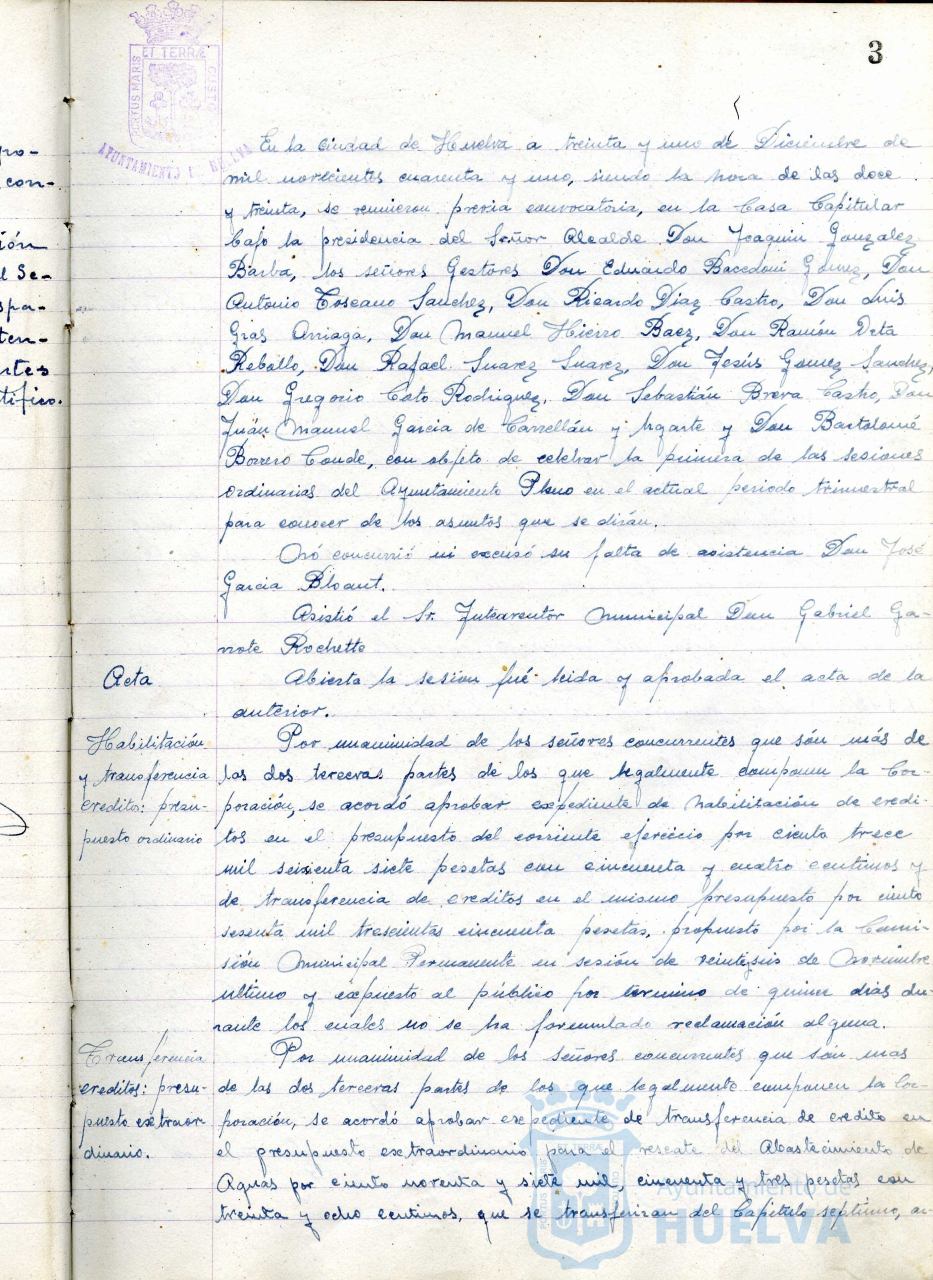 3
PORTUS MARIS ET TERRÆ CUSTOS
AYUNTAMIENTO DE HUELVA
En la ciudad de Huelva a treinta y uno de Diciembre de
mil novecientos cuarenta y uno, siendo la hora de las doce
y treinta, se reunieron previa convocatoria, en la Casa Capitular
bajo la presidencia del Señor Alcalde Don Joaquin Gonzalez
Barba, los señores Gestores Don Eduardo Bacedoni Gómez, Don
Antonio Toscano Sanchez, Don Ricardo Diaz Castro, Don Luis
Gras Arriaga, Don Manuel Hierro Baez, Don Ramón Orta
Rebollo, Don Rafael Suarez Suarez, Don Jesús Gomez Sanchez,
Don Gregorio Coto Rodriguez, Don Sebastián Brera Castro, Don
Juán Manuel Garcia de Carrellán y Ugarte y Don Bartolomé
Borrero Conde, con objeto de celebrar la primera de las sesiones
ordinarias del Ayuntamiento Pleno en el actual periodo trimestral
para conocer de los asuntos que se dirán.
Nó concurrió ni excusó su falta de asistencia Don José
Garcia Bloant.
Asistió el Sr. Interventor Municipal Don Gabriel Ga-
rrote Rochette
Acta
Abierta la sesion fué leida y aprobada el acta de la
anterior.
Habilitación
y transferencia
credito: presu-
puesto ordinario
Por unanimidad de los señores concurrentes que són más de
las dos terceras partes de los que legalmente componen la Cor-
poración, se acordó aprobar expediente de habilitación de credi-
tos en el presupuesto del corriente ejercicio por ciento trece
mil sesenta siete pesetas con cincuenta y cuatro centimos y
de transferencia de creditos en el mismo presupuesto por ciento
sesenta mil trescientas cincuenta pesetas, propuesto por la Comi-
sión Municipal Permanente en sesión de veintiseis de Noviembre
ultimo y expuesto al público por termino de quince dias du-
rante los cuales no se ha formulado reclamación alguna.
Transferencia
creditos: presu-
puesto extraor-
dinario.
Por unanimidad de los señores concurrentes que són mas
de las dos terceras partes de los que legalmente componen la Cor-
poración, se acordó aprobar expediente de transferencia de credito en
el presupuesto extraordinario para el rescate del Abastecimiento de
Aguas por ciento noventa y siete mil cincuenta y tres pesetas con
treinta y ocho centimos, que se transferiran del Capítulo septimo, ar-
pro-
con-
ión
l Se-
spa-
ten-
rtes
tifico.
Ayuntamiento de
HUELVA